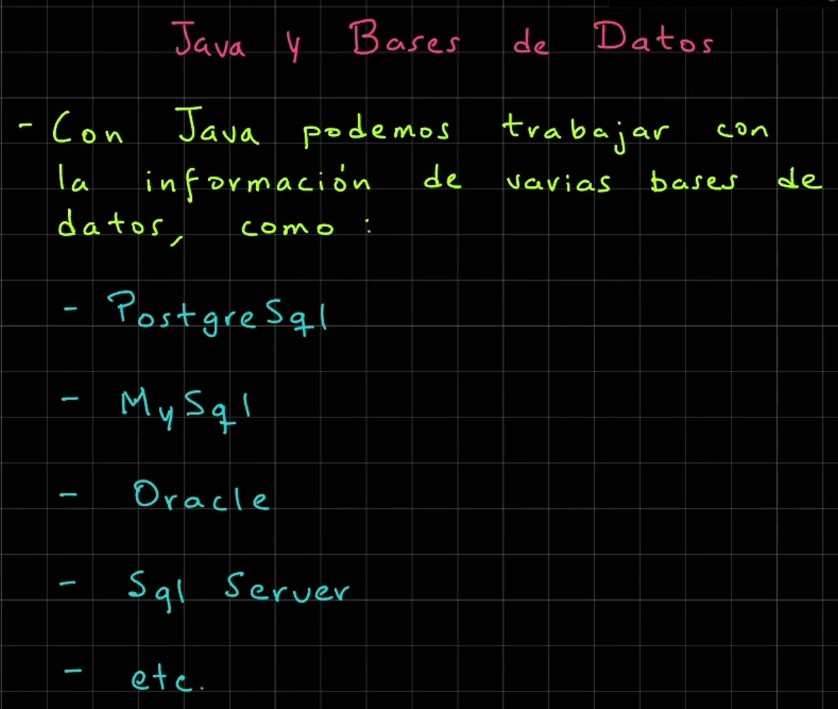 Java y Bases de Datos
- Con Java podemos trabajar con
la información de varias bases de
datos, como :
- PostgreSql
- MySql
- Oracle
- Sql Server
- etc.